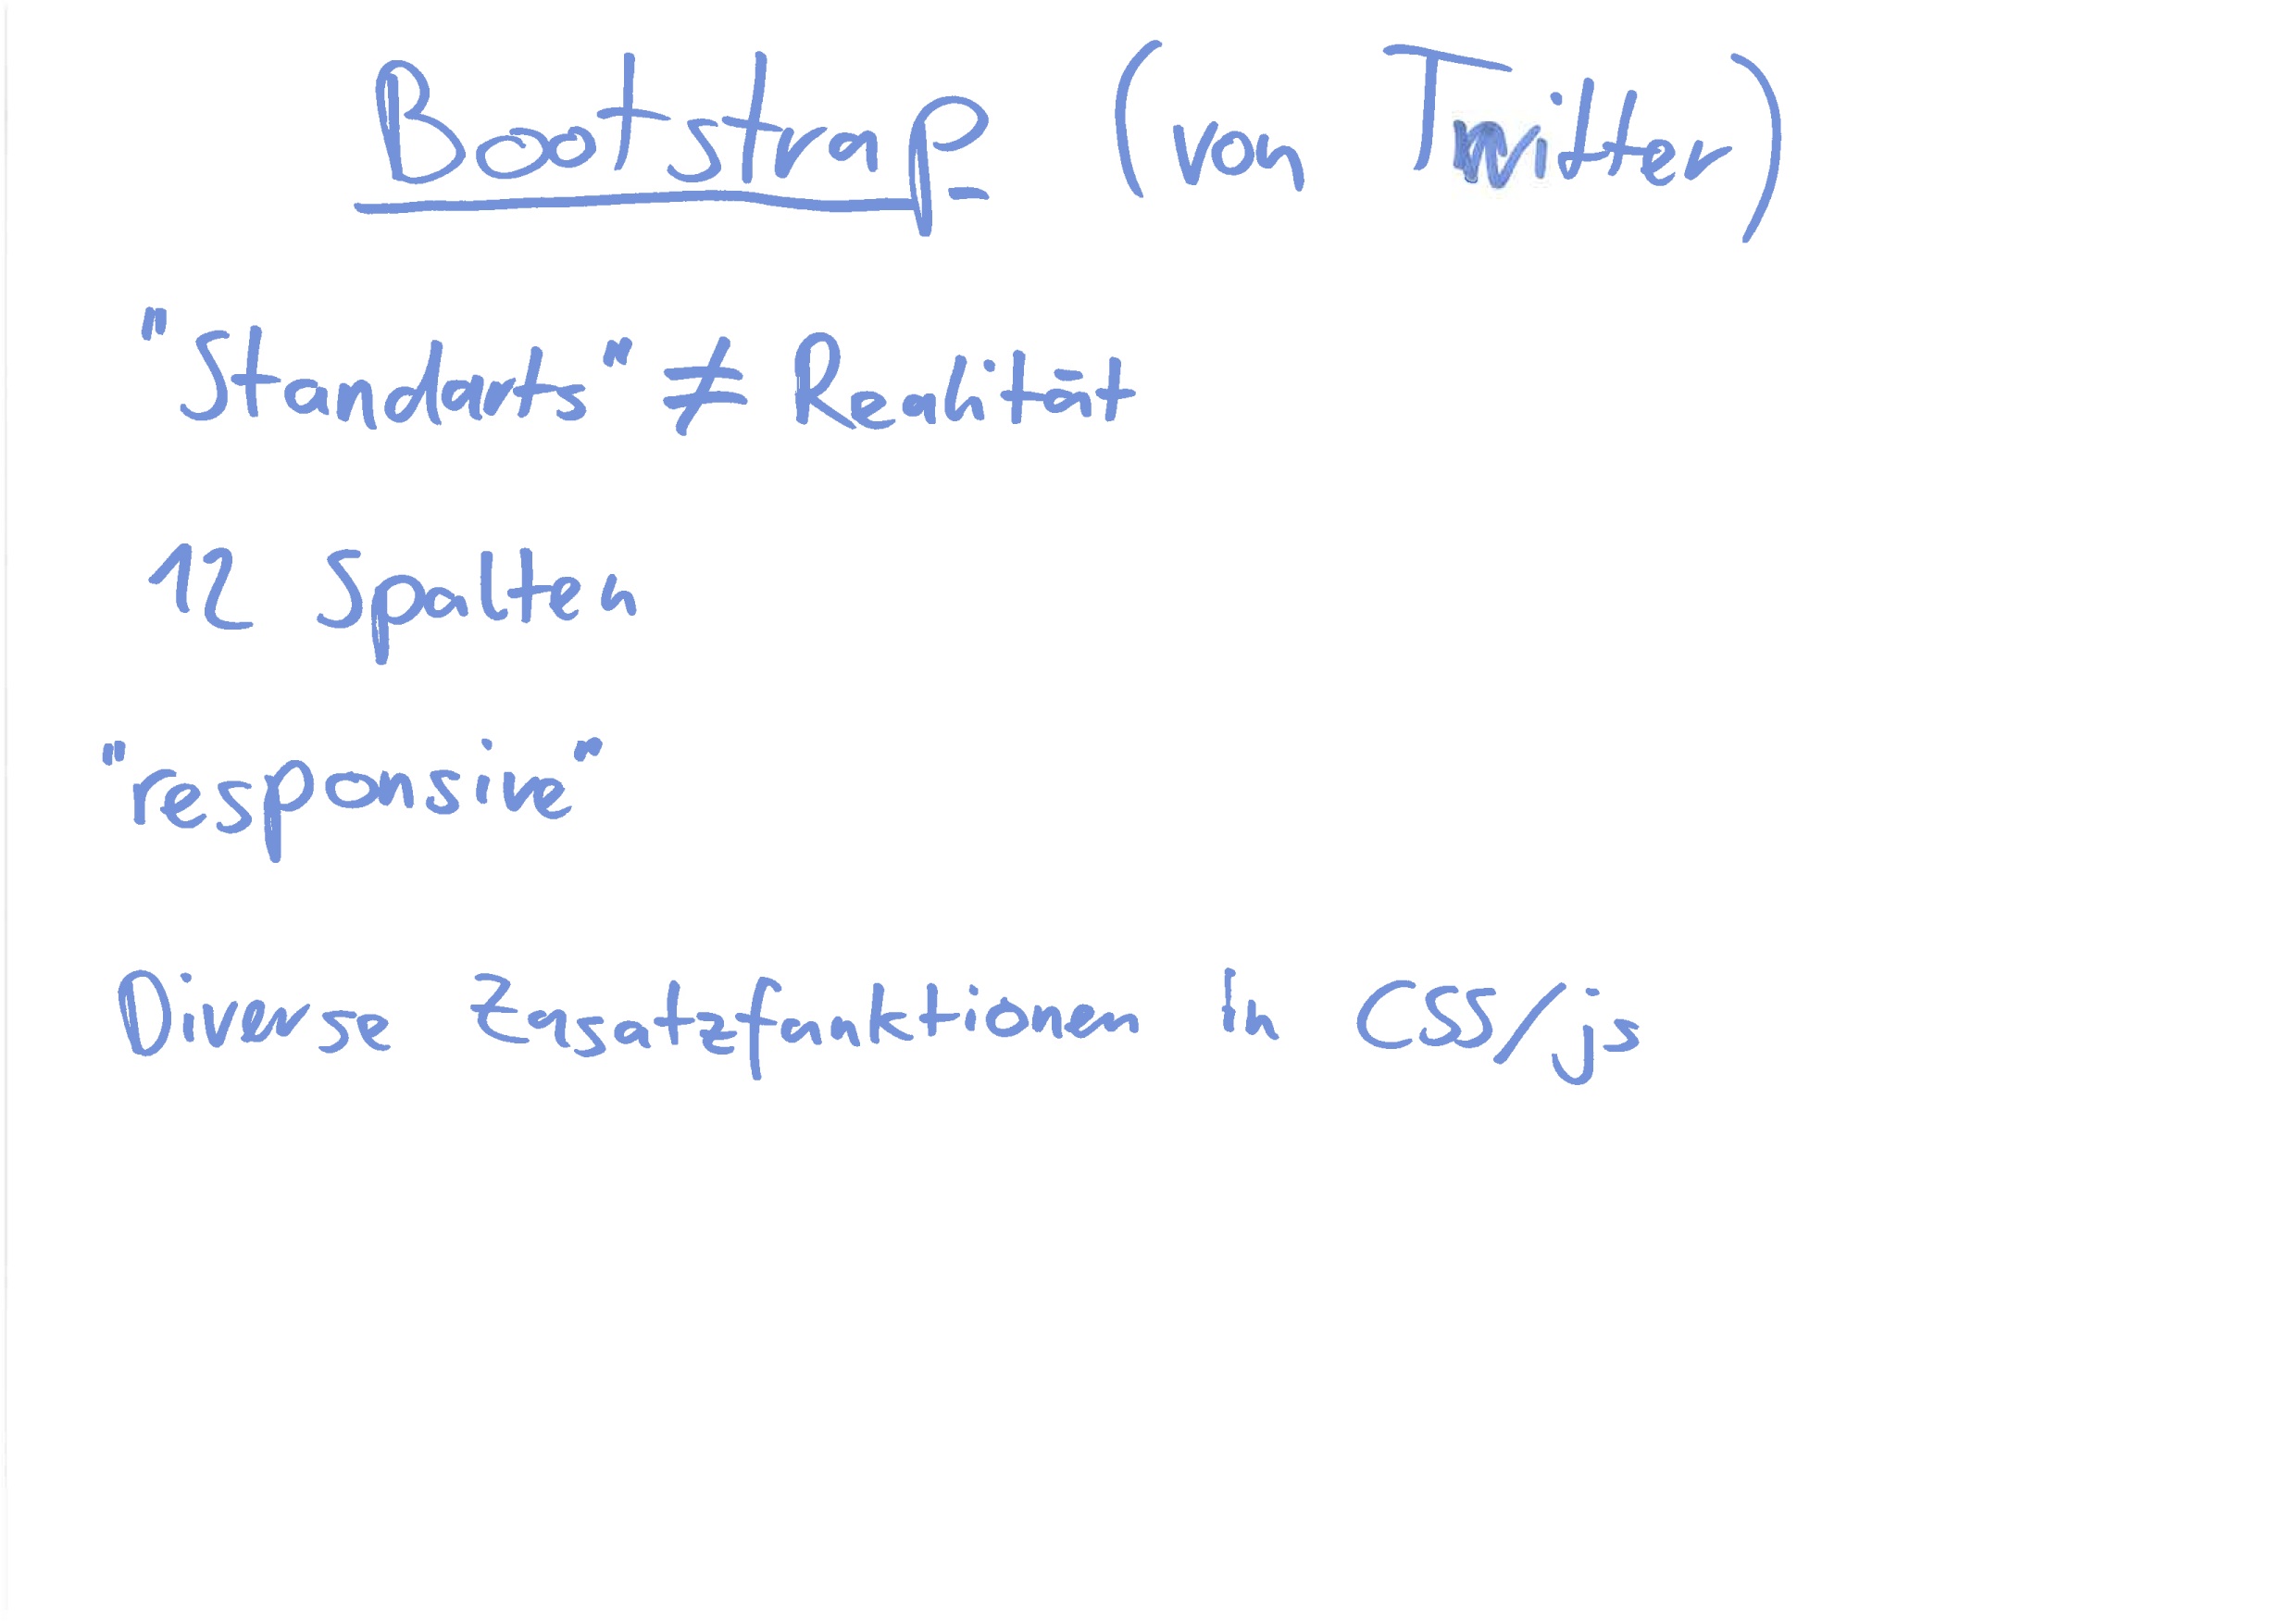 Bootstrap (von Twitter)
"Standarts" ≠ Realität
12 Spalten
"responsive"
Diverse Zusatzfunktionen in CSS/js